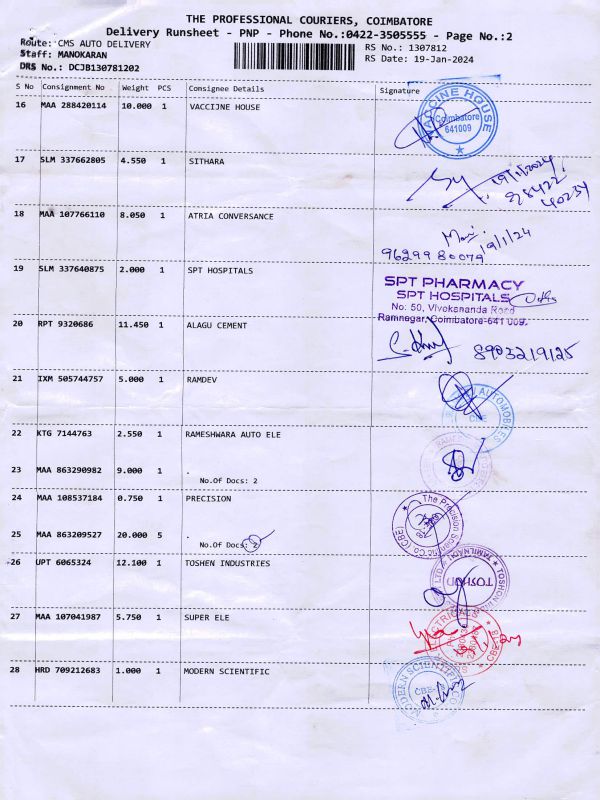 THE PROFESSIONAL COURIERS, COIMBATORE
Delivery Runsheet - PNP - Phone No.:0422-3505555 - Page No.:2
Route: CMS AUTO DELIVERY
Staff: MANOKARAN
DRS No.: DCJB130781202
RS No.: 1307812
RS Date: 19-Jan-2024
S No Consignment No Weight PCS Consignee Details Signature
16 MAA 288420114 10.000 1 VACCIJNE HOUSE
VACCINE HOUSE
Coimbatore
641009
17 SLM 337662805 4.550 1 SITHARA
19/1/2024
98422
40234
18 MAA 107766110 8.050 1 ATRIA CONVERSANCE
19/1/24
9629980079
19 SLM 337640875 2.000 1 SPT HOSPITALS
SPT PHARMACY
SPT HOSPITALS
No: 50, Vivekananda Road
Ramnagar, Coimbatore-641 009.
20 RPT 9320686 11.450 1 ALAGU CEMENT
8903219125
21 IXM 505744757 5.000 1 RAMDEV
AUTOMOBILES
CBE
22 KTG 7144763 2.550 1 RAMESHWARA AUTO ELE
23 MAA 863290982 9.000 1 .
No.Of Docs: 2
24 MAA 108537184 0.750 1 PRECISION
The Precision Scientific Co (CBE)
25 MAA 863209527 20.000 5 .
No.Of Docs: 2
26 UPT 6065324 12.100 1 TOSHEN INDUSTRIES
TOSHON
TAMILNADU
27 MAA 107041987 5.750 1 SUPER ELE
28 HRD 709212683 1.000 1 MODERN SCIENTIFIC
MODERN SCIENTIFIC CO
CBE-